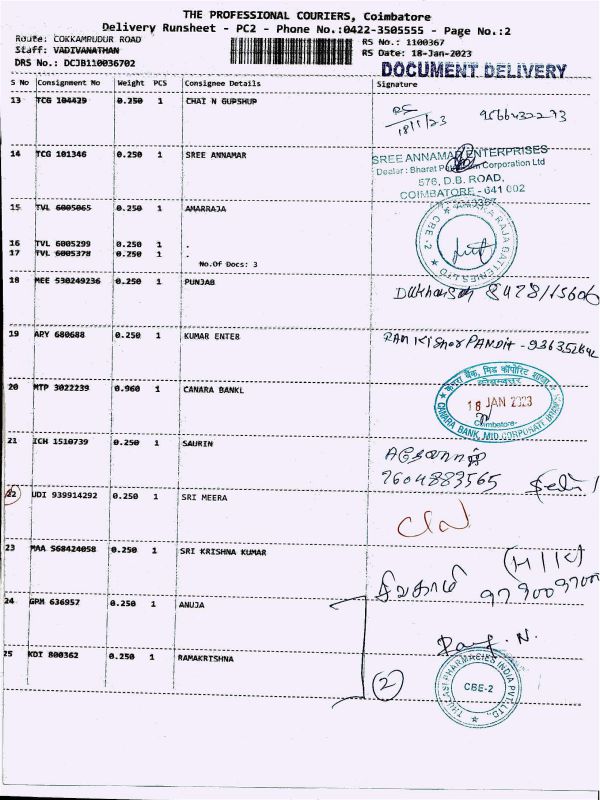 THE PROFESSIONAL COURIERS, Coimbatore
Delivery Runsheet - PC2 - Phone No.:0422-3505555 - Page No.:2
Route: COKKAMPUDUR ROAD
RS No.: 1100367
Staff: VADIVANATHAN
RS Date: 18-Jan-2023
DRS No.: DCJB110036702
DOCUMENT DELIVERY
S No Consignment No Weight PCS Consignee Details Signature
13 TCG 104429 0.250 1 CHAI N GUPSHUP
18/1/23
14 TCG 101346 0.250 1 SREE ANNAMAR
SREE ANNAMAR ENTERPRISES
Dealer : Bharat Petroleum Corporation Ltd
576, D.B. ROAD,
COIMBATORE - 641 002
15 TVL 6005065 0.250 1 AMARRAJA
16 TVL 6005299 0.250 1 .
17 TVL 6005378 0.250 1 .
No.Of Docs: 3
AMARA RAJA BATTERIES LTD ★ CBE-2 ★
18 MEE 530249236 0.250 1 PUNJAB
19 ARY 680688 0.250 1 KUMAR ENTER
RAM KISHOR PANDIT -
20 MTP 3022239 0.960 1 CANARA BANKL
केनरा बैंक, मिड कॉर्पोरेट शाखा
कोयम्बत्तूर
18 JAN 2023
Coimbatore-
CANARA BANK, MID CORPORATE BRANCH
21 ICH 1510739 0.250 1 SAURIN
9604883565
22 UDI 939914292 0.250 1 SRI MEERA
23 MAA 568424058 0.250 1 SRI KRISHNA KUMAR
(H/K)
சிவகாமி
24 GPM 636957 0.250 1 ANUJA
25 KDI 800362 0.250 1 RAMAKRISHNA
2
THULASI PHARMACIES INDIA PVT. LTD.,
CBE-2